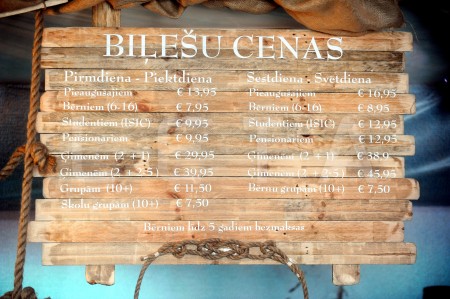 BIĻEŠU CENAS
Pirmdiena - Piektdiena
Pieaugušajiem € 13,95
Bērniem (6-16) € 7,95
Studentiem (ISIC) € 9,95
Pensionāriem € 9,95
Ģimenēm (2 + 1) € 29,95
Ģimenēm (2 + 2-5 ) € 39,95
Grupām (10+) € 11,50
Skolu grupām (10+) € 7,50
Sestdiena - Svētdiena
Pieaugušajiem € 16,95
Bērniem (6-16) € 8,95
Studentiem (ISIC) € 12,95
Pensionāriem € 12,95
Ģimenēm (2 + 1) € 38,9
Ģimenēm (2 + 2-5 ) € 45,95
Bērnu grupām (10+) € 7,50
Bērniem līdz 5 gadiem bezmaksas